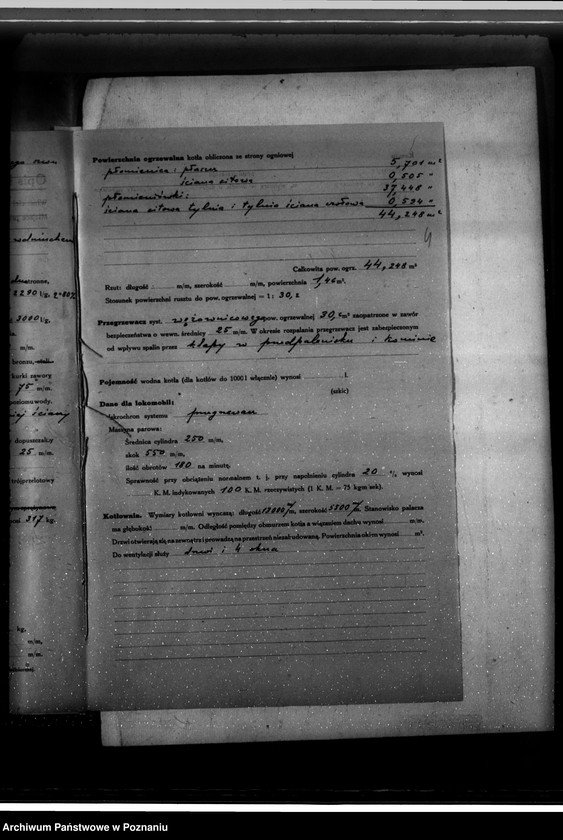 Powierzchnia ogrzewalna kotła obliczona ze strony ogniowej
płomienica: płaszcz 5,701 m²
ściana sitowa 0,505 "
płomieniówki: 37,448 "
ściana sitowa tylnia i tylnia ściana wzołowa 0,594 "
44,248 m²
Całkowita pow. ogrz. 44,248 m²
Rzut: długość m/m, szerokość m/m, powierzchnia 1,46 m².
Stosunek powierzchni rusztu do pow. ogrzewalnej = 1 : 30,2
Przegrzewacz syst. wężownicowy o pow. ogrzewalnej 30, m² zaopatrzone w zawór
bezpieczeństwa o wewn. średnicy 25 m/m. W okresie rozpalania przegrzewacz jest zabezpieczonym
od wpływu spalin przez klapy w przedpalenisku i kominie
Pojemność wodna kotła (dla kotłów do 1000 l włącznie) wynosi l.
(szkic)
Dane dla lokomobil:
Iskrochron systemu
Maszyna parowa:
Średnica cylindra 250 m/m,
skok 550 m/m,
ilość obrotów 180 na minutę,
Sprawność przy obciążeniu normalnem t. j. przy napełnieniu cylindra 20 % wynosi
K. M. indykowanych 100 K. M. rzeczywistych (1 K. M. = 75 kgm/sek).
Kotłownia. Wymiary kotłowni wynoszą: długość 13000 m/m, szerokość 5500 m/m. Stanowisko palacza
ma głębokość m/m. Odległość pomiędzy obmurzem kotła a wiązaniem dachu wynosi m/m.
Drzwi otwierają się na zewnątrz i prowadzą na przestrzeń niezabudowaną. Powierzchnia okien wynosi m².
Do wentylacji służy drzwi i 4 okna
2290
3000
m/m.
75 m/m.
25 m/m.
317 kg.
kg,
m/m,
m/m.
Archiwum Państwowe w Poznaniu